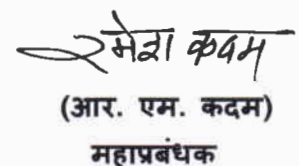 रमेश कदम
(आर. एम. कदम)
महाप्रबंधक